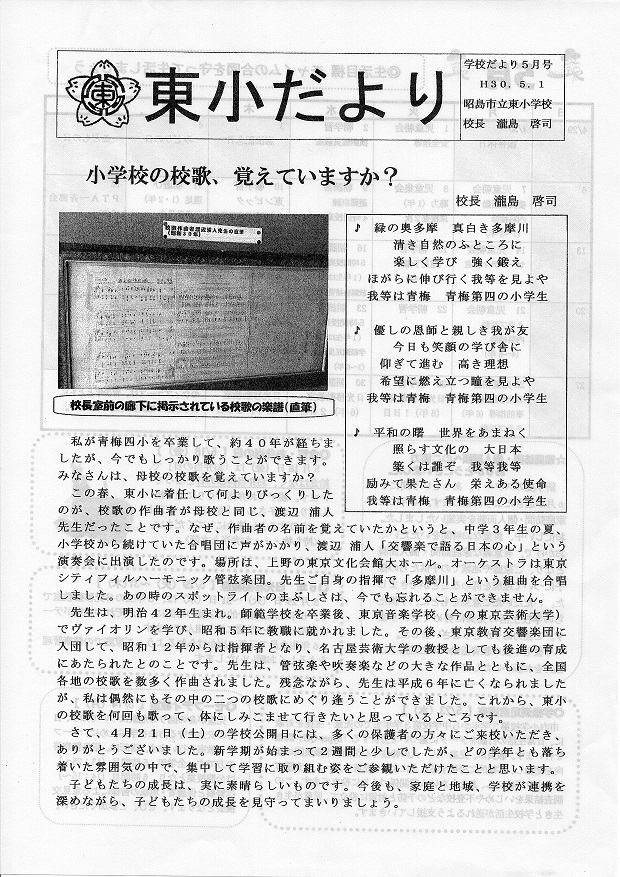 東小だより
学校だより5月号
H30.5.1
昭島市立東小学校
校長 瀧島 啓司
小学校の校歌、覚えていますか?
校長 瀧島 啓司
校歌作曲者渡辺浦人先生の直筆
(昭和39年)
校長室前の廊下に掲示されている校歌の楽譜(直筆)
♪ 緑の奥多摩 真白き多摩川
清き自然のふところに
楽しく学び 強く鍛え
ほがらに伸び行く我等を見よや
我等は青梅 青梅第四の小学生
♪ 優しの恩師と親しき我が友
今日も笑顔の学び舎に
仰ぎて進む 高き理想
希望に燃え立つ瞳を見よや
我等は青梅 青梅第四の小学生
♪ 平和の曙 世界をあまねく
照らす文化の 大日本
築くは誰ぞ 我等我等
励みて果たさん 栄えある使命
我等は青梅 青梅第四の小学生
私が青梅四小を卒業して、約40年が経ちま
したが、今でもしっかり歌うことができます。
みなさんは、母校の校歌を覚えていますか?
この春、東小に着任して何よりびっくりした
のが、校歌の作曲者が母校と同じ、渡辺 浦人
先生だったことです。なぜ、作曲者の名前を覚えていたかというと、中学3年生の夏、
小学校から続けていた合唱団に声がかかり、渡辺 浦人「交響楽で語る日本の心」という
演奏会に出演したのです。場所は、上野の東京文化会館大ホール。オーケストラは東京
シティフィルハーモニック管弦楽団。先生ご自身の指揮で「多摩川」という組曲を合唱
しました。あの時のスポットライトのまぶしさは、今でも忘れることができません。
先生は、明治42年生まれ。師範学校を卒業後、東京音楽学校(今の東京芸術大学)
でヴァイオリンを学び、昭和5年に教職に就かれました。その後、東京教育交響楽団に
入団して、昭和12年からは指揮者となり、名古屋芸術大学の教授としても後進の育成
にあたられたとのことです。先生は、管弦楽や吹奏楽などの大きな作品とともに、全国
各地の校歌を数多く作曲されました。残念ながら、先生は平成6年に亡くなられました
が、私は偶然にもその中の二つの校歌にめぐり逢うことができました。これから、東小
の校歌を何回も歌って、体にしみこませて行きたいと思っているところです。
さて、4月21日(土)の学校公開日には、多くの保護者の方々にご来校いただき、
ありがとうございました。新学期が始まって2週間と少しでしたが、どの学年とも落ち
着いた雰囲気の中で、集中して学習に取り組む姿をご参観いただけたことと思います。
子どもたちの成長は、実に素晴らしいものです。今後も、家庭と地域、学校が連携を
深めながら、子どもたちの成長を見守ってまいりましょう。